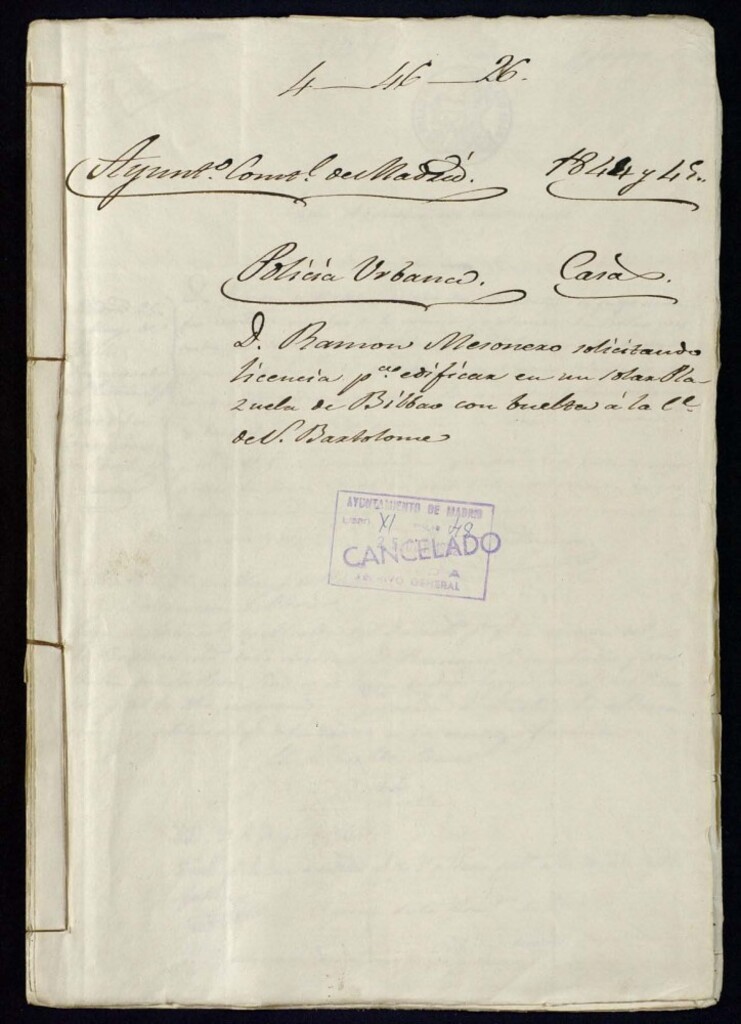 4—46—26.
Ayunt.º Const.l de Madrid. 1844 y 45..
Policia Urbana. Casas.
D. Ramon Mesonero solicitando
licencia p.ª edificar en un solar Pla-
zuela de Bilbao con buelta á la C.e
de S. Bartolome
AYUNTAMIENTO DE MADRID
LIBRO XI FOLIO 78
CANCELADO
ARCHIVO GENERAL